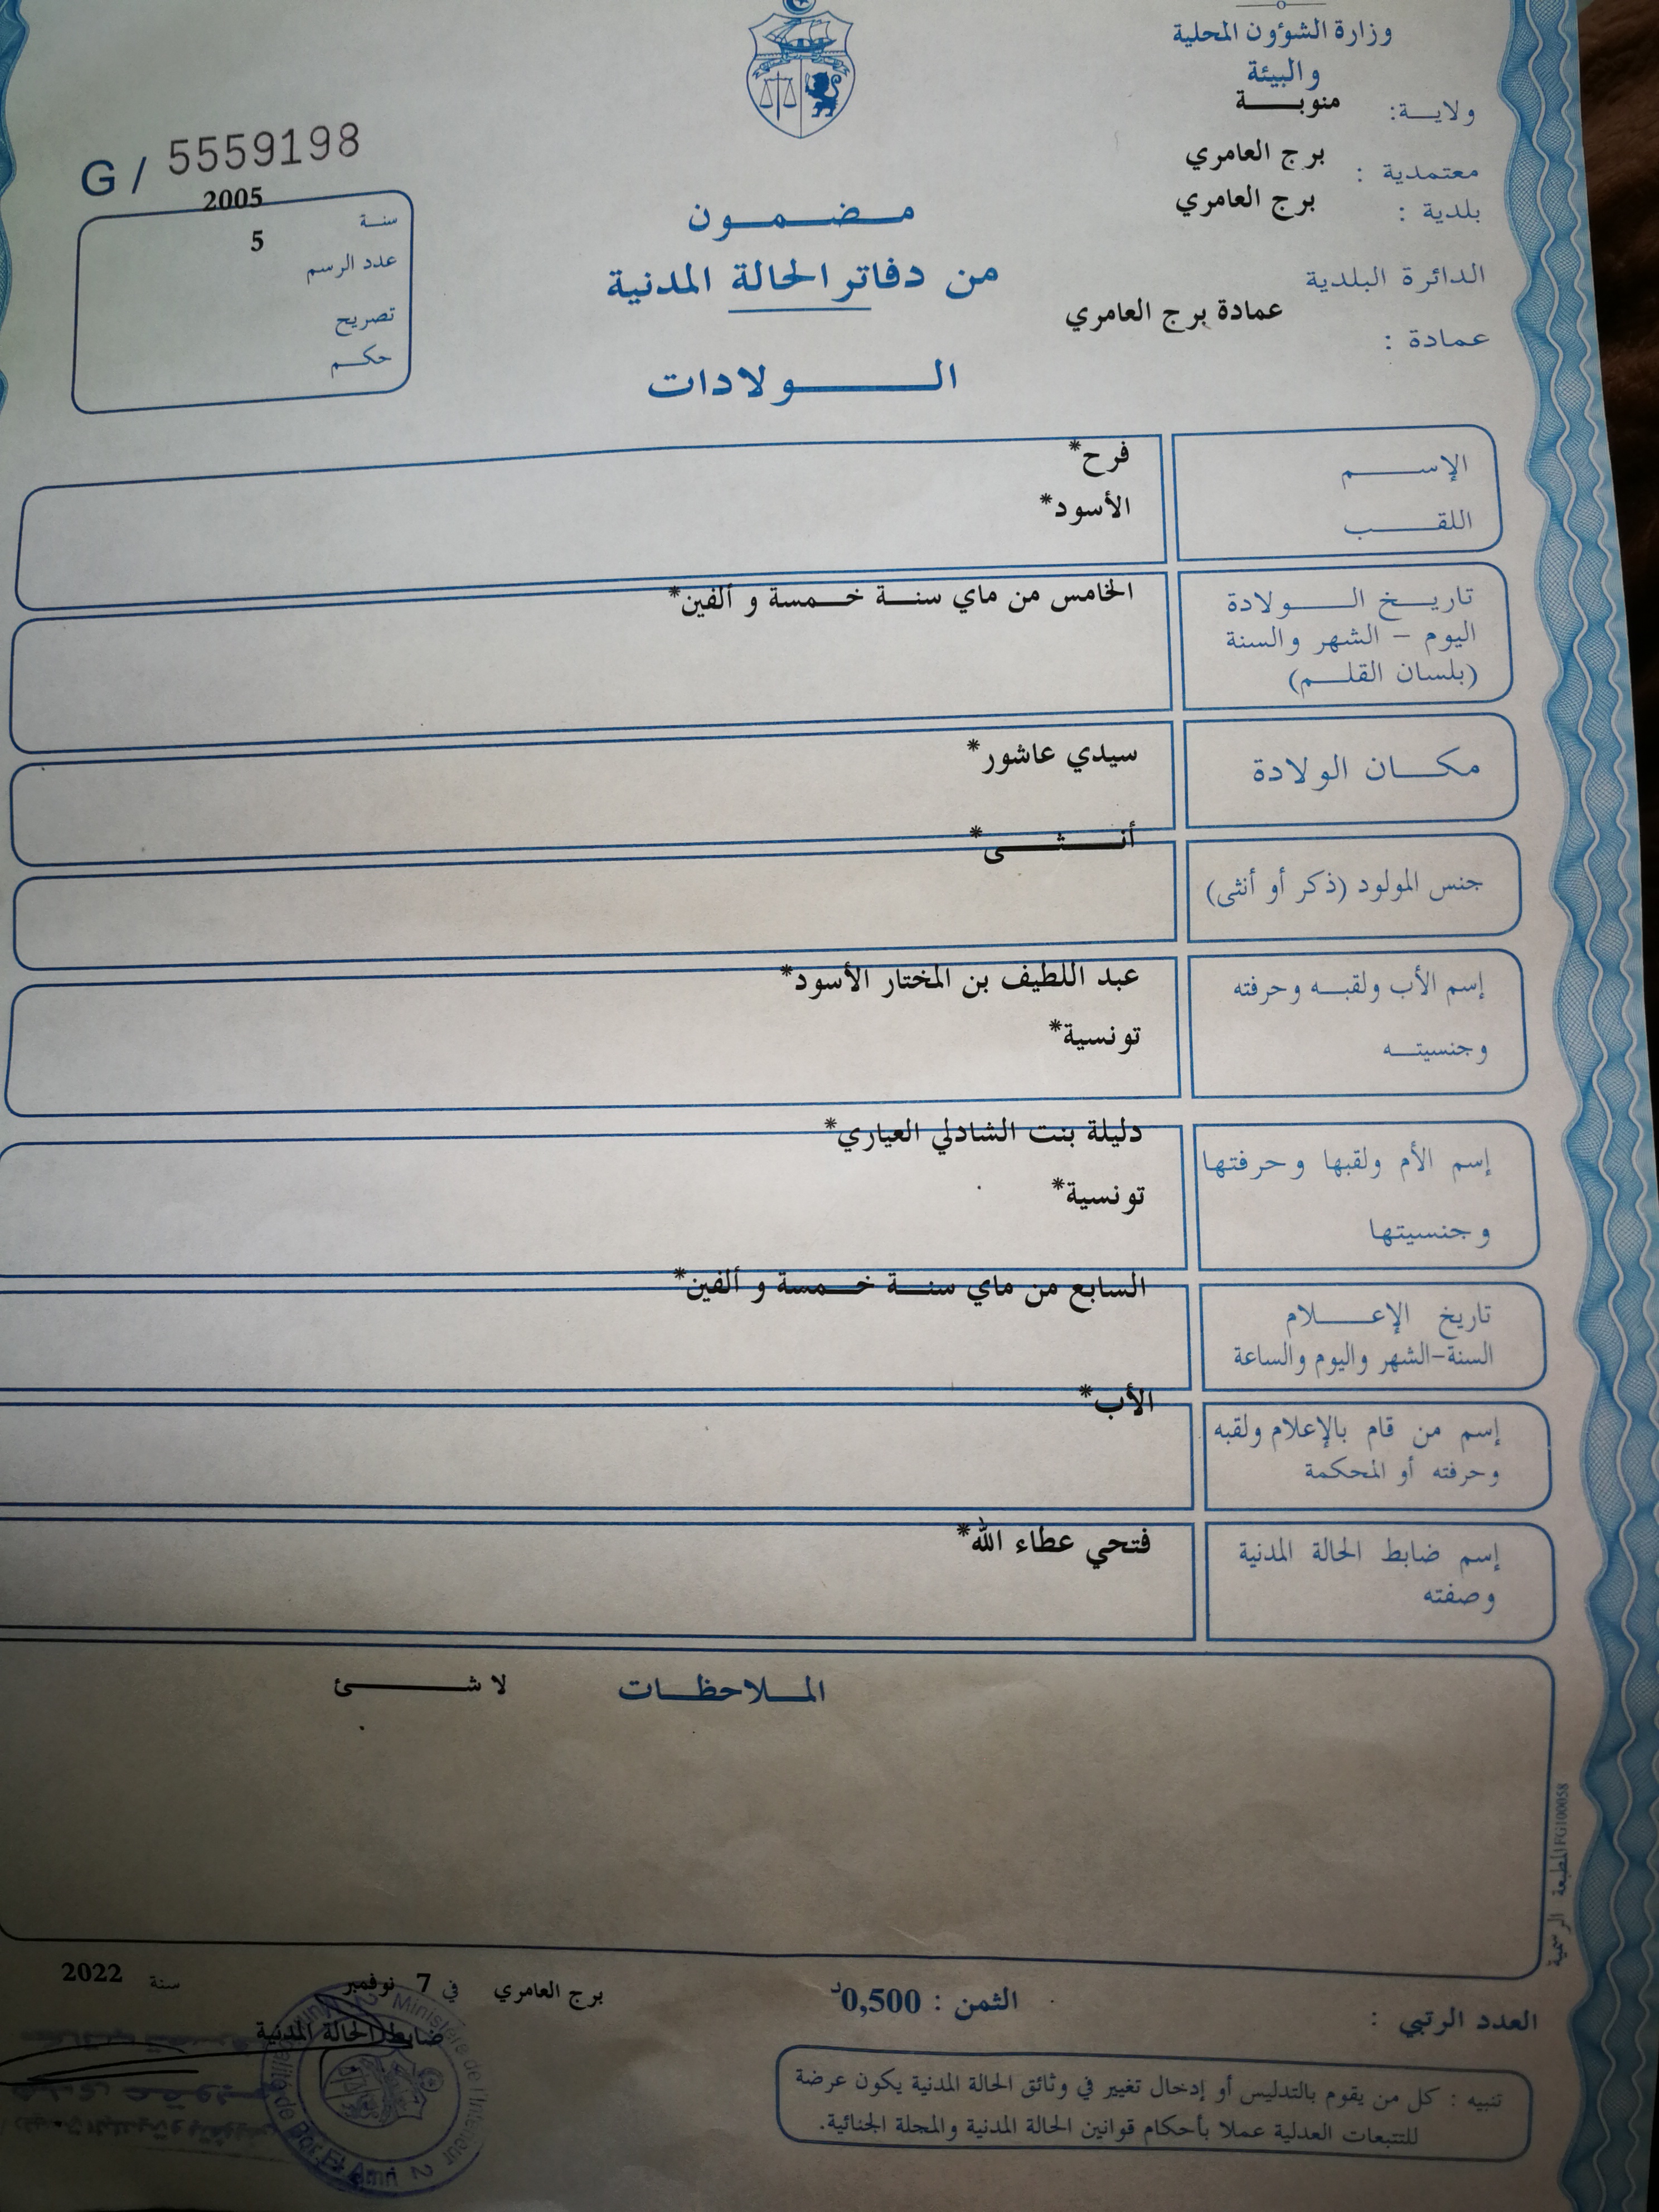 وزارة الشؤون المحلية
والبيئة
ولاية: منوبة
معتمدية : برج العامري
بلدية : برج العامري
الدائرة البلدية
عمادة : عمادة برج العامري
G / 5559198
سنة 2005
عدد الرسم 5
تصريح
حكم
مضمون
من دفاتر الحالة المدنية
الولادات
الإسم فرح*
اللقب الأسود*
تاريخ الولادة الخامس من ماي سنة خمسة و ألفين*
اليوم - الشهر والسنة
(بلسان القلم)
مكان الولادة سيدي عاشور*
جنس المولود (ذكر أو أنثى) أنثى*
إسم الأب ولقبه وحرفته عبد اللطيف بن المختار الأسود*
وجنسيته تونسية*
إسم الأم ولقبها وحرفتها دليلة بنت الشادلي العياري*
وجنسيتها تونسية*
تاريخ الإعلام السابع من ماي سنة خمسة و ألفين*
السنة-الشهر واليوم والساعة
إسم من قام بالإعلام ولقبه الأب*
وحرفته أو المحكمة
إسم ضابط الحالة المدنية فتحي عطاء الله*
وصفته
الملاحظات لا شئ
المطبعة الرسمية FG100058
برج العامري في 7 نوفمبر سنة 2022
ضابط الحالة المدنية
الثمن : 0,500د
العدد الرتبي :
تنبيه : كل من يقوم بالتدليس أو إدخال تغيير في وثائق الحالة المدنية يكون عرضة
للتتبعات العدلية عملا بأحكام قوانين الحالة المدنية والمجلة الجنائية.
Ministère de l'Intérieur
de Borj El Amri 2